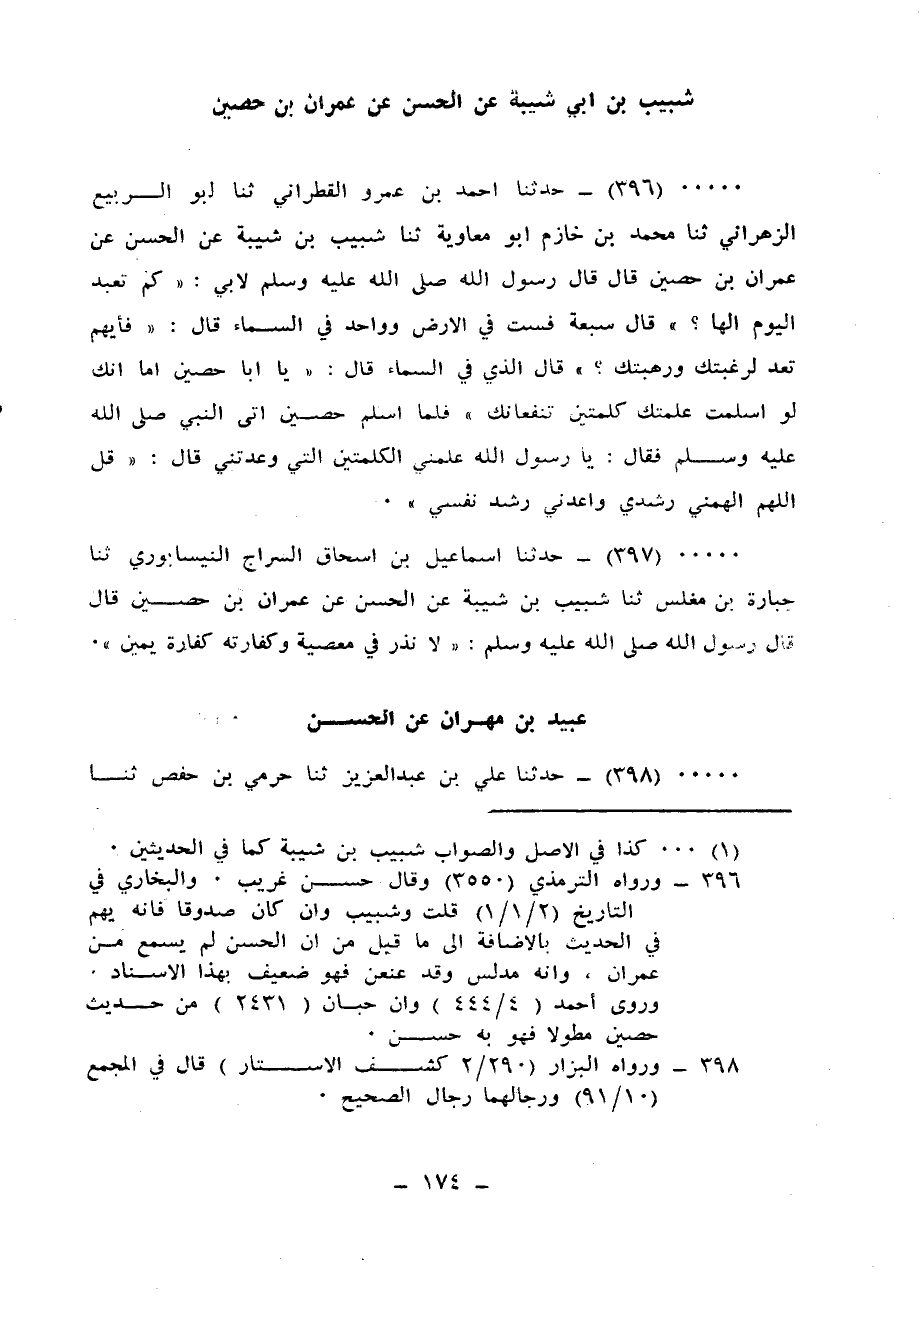 شبيب بن ابي شيبة عن الحسن عن عمران بن حصين
٠٠٠٠٠ (٣٩٦) ــ حدثنا احمد بن عمرو القطراني ثنا ابو الـــربيع
الزهراني ثنا محمد بن خازم ابو معاوية ثنا شبيب بن شيبة عن الحسن عن
عمران بن حصين قال قال رسول الله صلى الله عليه وسلم لابي : « كم تعبد
اليوم الها ؟ » قال سبعة فست في الارض وواحد في الســماء قال : « فأيهم
تعد لرغبتك ورهبتك ؟ » قال الذي في السماء قال : « يا ابا حصين اما انك
لو اسلمت علمتك كلمتين تنفعانك » فلما اسلم حصــين اتى النبي صلى الله
عليه وســـلم فقال : يا رسول الله علمني الكلمتين التي وعدتني قال : « قل
اللهم الهمني رشدي واعذني رشد نفسي » ٠
٠٠٠٠٠ (٣٩٧) ــ حدثنا اسماعيل بن اسحاق السراج النيسابوري ثنا
جبارة بن مغلس ثنا شبيب بن شيبة عن الحسن عن عمران بن حصـــين قال
قال رسول الله صلى الله عليه وسلم : « لا نذر في معصية وكفارته كفارة يمين »٠
عبيد بن مهـران عن الحســـن
٠٠٠٠٠ (٣٩٨) ــ حدثنا علي بن عبدالعزيز ثنا حرمي بن حفص ثنـــا
(١) ٠٠٠ كذا في الاصل والصواب شبيب بن شيبة كما في الحديثين ٠
٣٩٦ ــ ورواه الترمذي (٣٥٥٠) وقال حســن غريب ٠ والبخاري في
التاريخ (١/١/٢) قلت وشبيب وان كان صدوقا فانه يهم
في الحديث بالاضافة الى ما قيل من ان الحسن لم يسمع مــن
عمران ، وانه مدلس وقد عنعن فهو ضعيف بهذا الاســناد ٠
وروى أحمد ( ٤٤٤/٤ ) وان حبــان ( ٢٤٣١ ) من حـــديث
حصين مطولا فهو به حســـن ٠
٣٩٨ ــ ورواه البزار (٢/٢٩٠ كشـــف الاســـتار ) قال في المجمع
(٩١/١٠) ورجالهما رجال الصحيح ٠
ــ ١٧٤ ــ